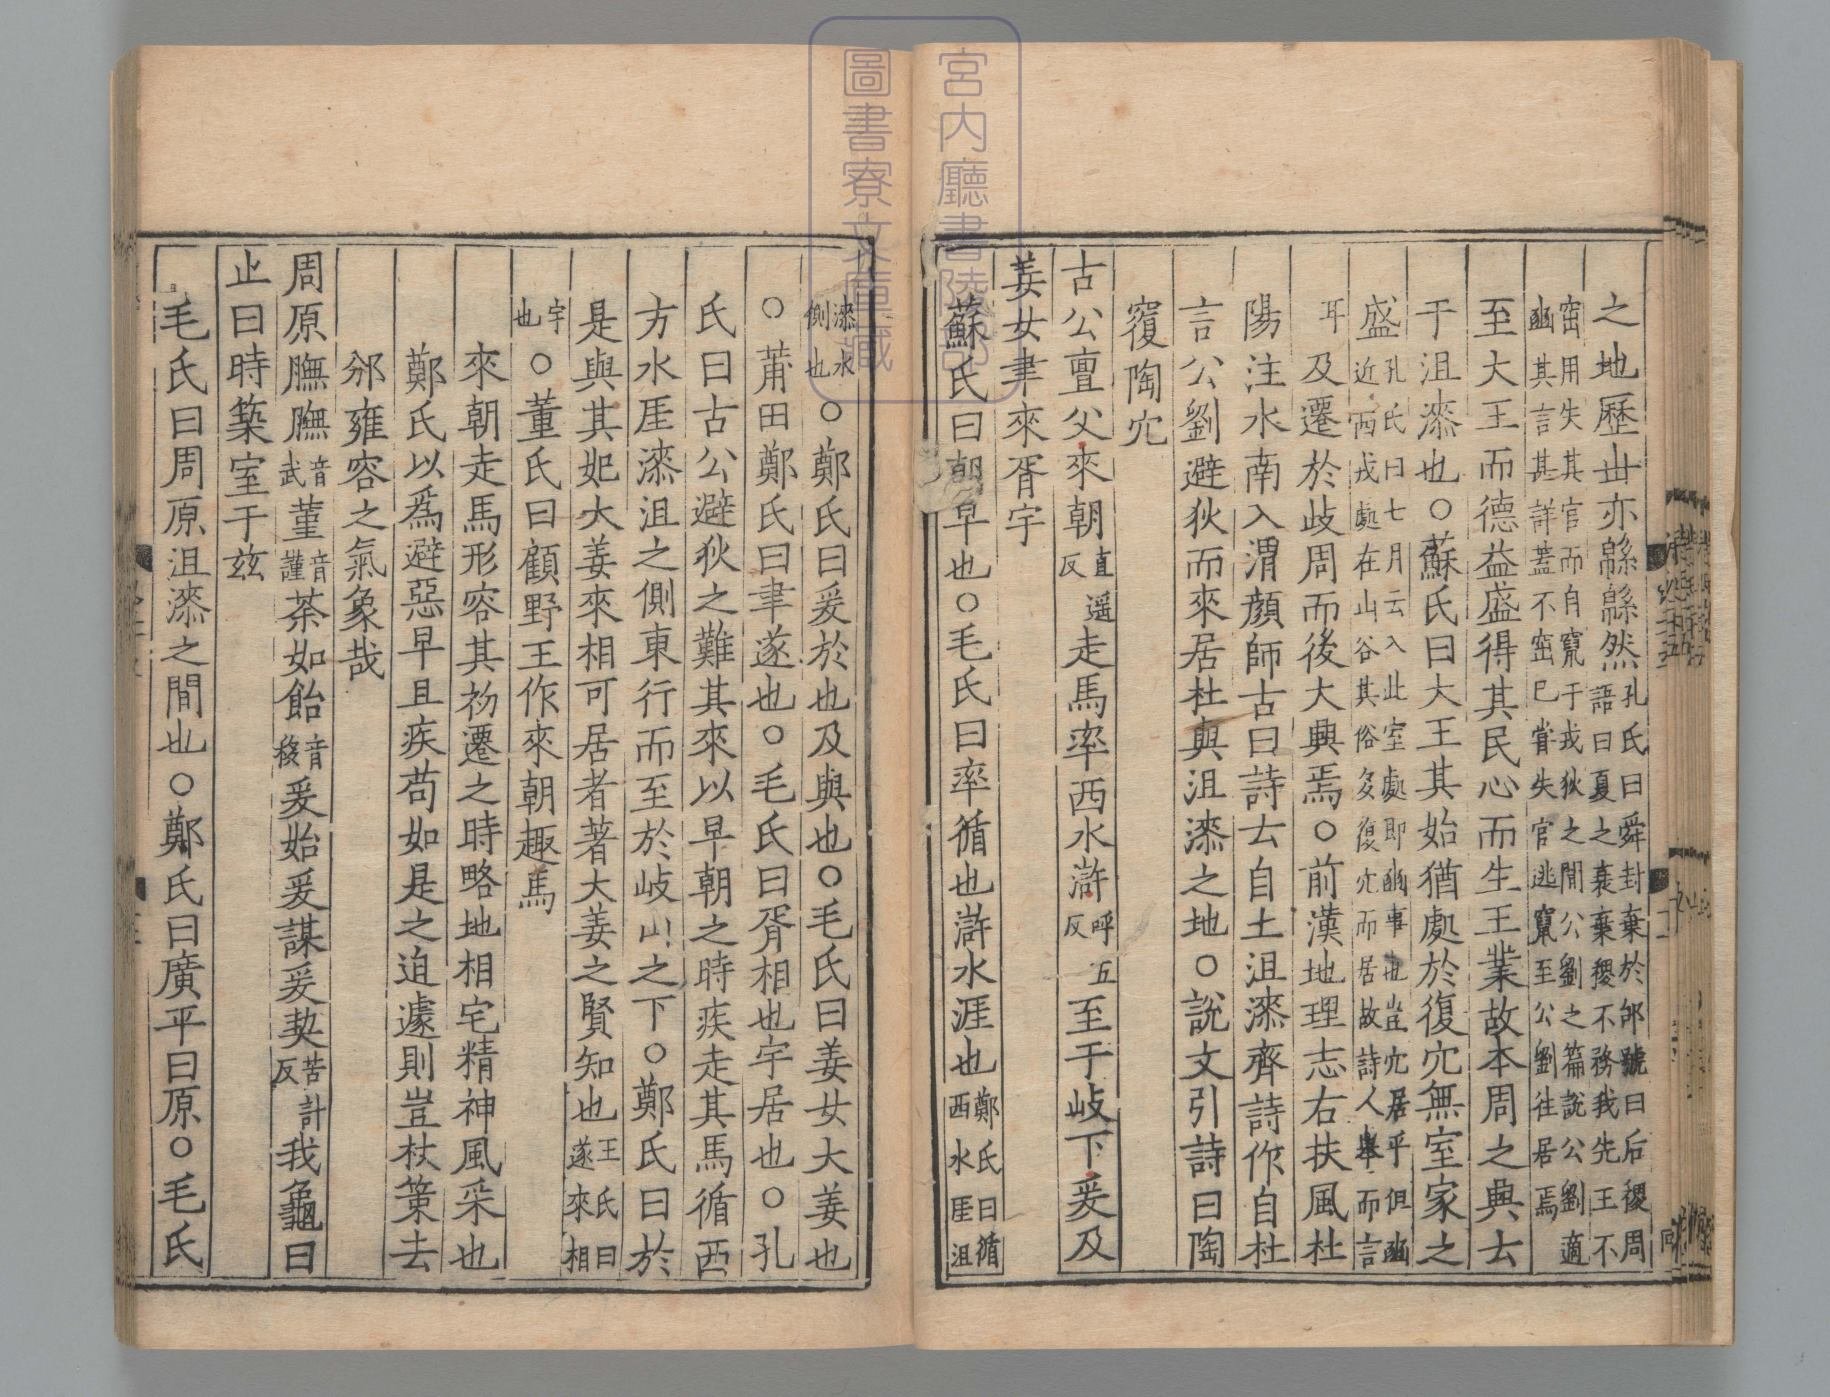 之地歷世亦緜緜然孔氏曰舜封棄於邰號曰后稷周語曰夏之衰棄稷不務我先王不
窋用失其官而自竄于戎狄之間公劉之篇說公劉適豳其言甚詳蓋不窋已嘗失官逃竄至公劉往居焉
至大王而德益盛得其民心而生王業故本周之興云
于沮漆也○蘇氏曰大王其始猶處於復穴無室家之
盛孔氏曰七月云入此室處即豳事也豈穴居乎但豳近西戎處在山谷其俗多復穴而居故詩人舉而言
耳及遷於歧周而後大興焉○前漢地理志右扶風杜
陽注水南入渭顏師古曰詩云自土沮漆齊詩作自杜
言公劉避狄而來居杜與沮漆之地○說文引詩曰陶
寢陶穴
古公亶父來朝直遥反走馬率西水滸呼五反至于歧下爰及
姜女聿來胥宇
蘇氏曰朝早也○毛氏曰率循也滸水涯也鄭氏曰循西水厓沮
漆水側也○鄭氏曰爰於也及與也○毛氏曰姜女大姜也
○莆田鄭氏曰聿遂也○毛氏曰胥相也宇居也○孔
氏曰古公避狄之難其來以早朝之時疾走其馬循西
方水厓漆沮之側東行而至於歧山之下○鄭氏曰於
是與其妃大姜來相可居者著大姜之賢知也王氏曰遂來相
宇也○董氏曰顧野王作來朝趣馬
來朝走馬形容其初遷之時略地相宅精神風采也
鄭氏以爲避惡早且疾苟如是之迫遽則豈杖策去
邠雍容之氣象哉
周原膴膴音武菫音謹荼如飴音移爰始爰謀爰契苦計反我龜曰
止曰時築室于兹
毛氏曰周原沮漆之間也○鄭氏曰廣平曰原○毛氏
宮内廳書陵部
圖書寮文庫藏